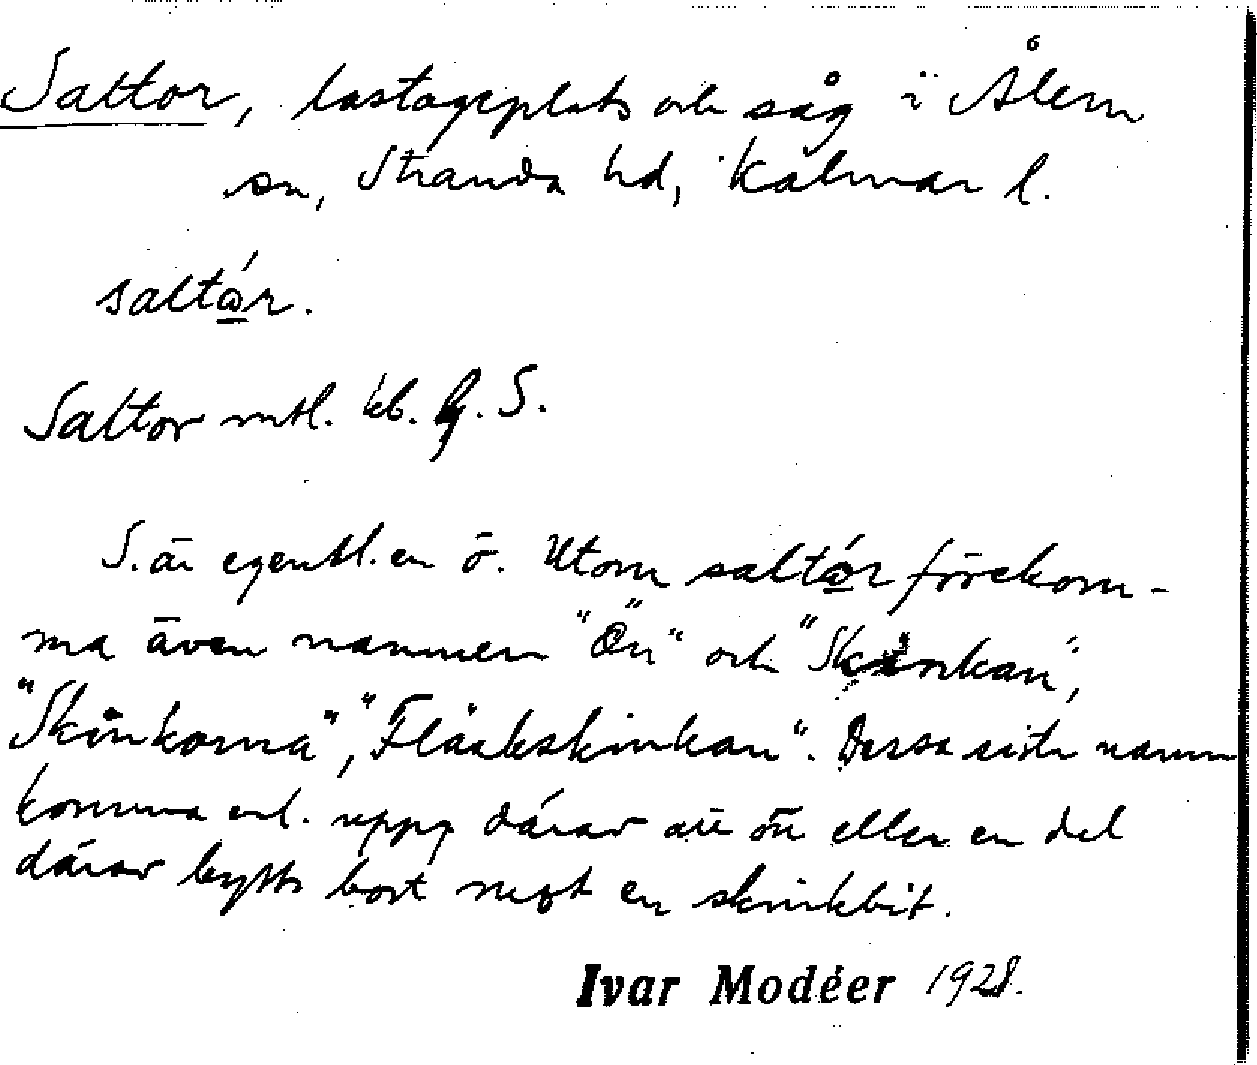 Saltor, lastageplats och såg i Ålem
sn, Stranda hd, Kalmar l.
saltór.
Saltor mtl. kb. G. S.
S. är egentl. en ö. Utom saltór förekom-
ma även namnen "Ön" och "Skinkan",
"Skinkorna", "Fläskskinkan". Dessa sista namn
komma enl. uppg därav att ön eller en del
därav bytts bort mot en skinkbit.
Ivar Modéer 1928.